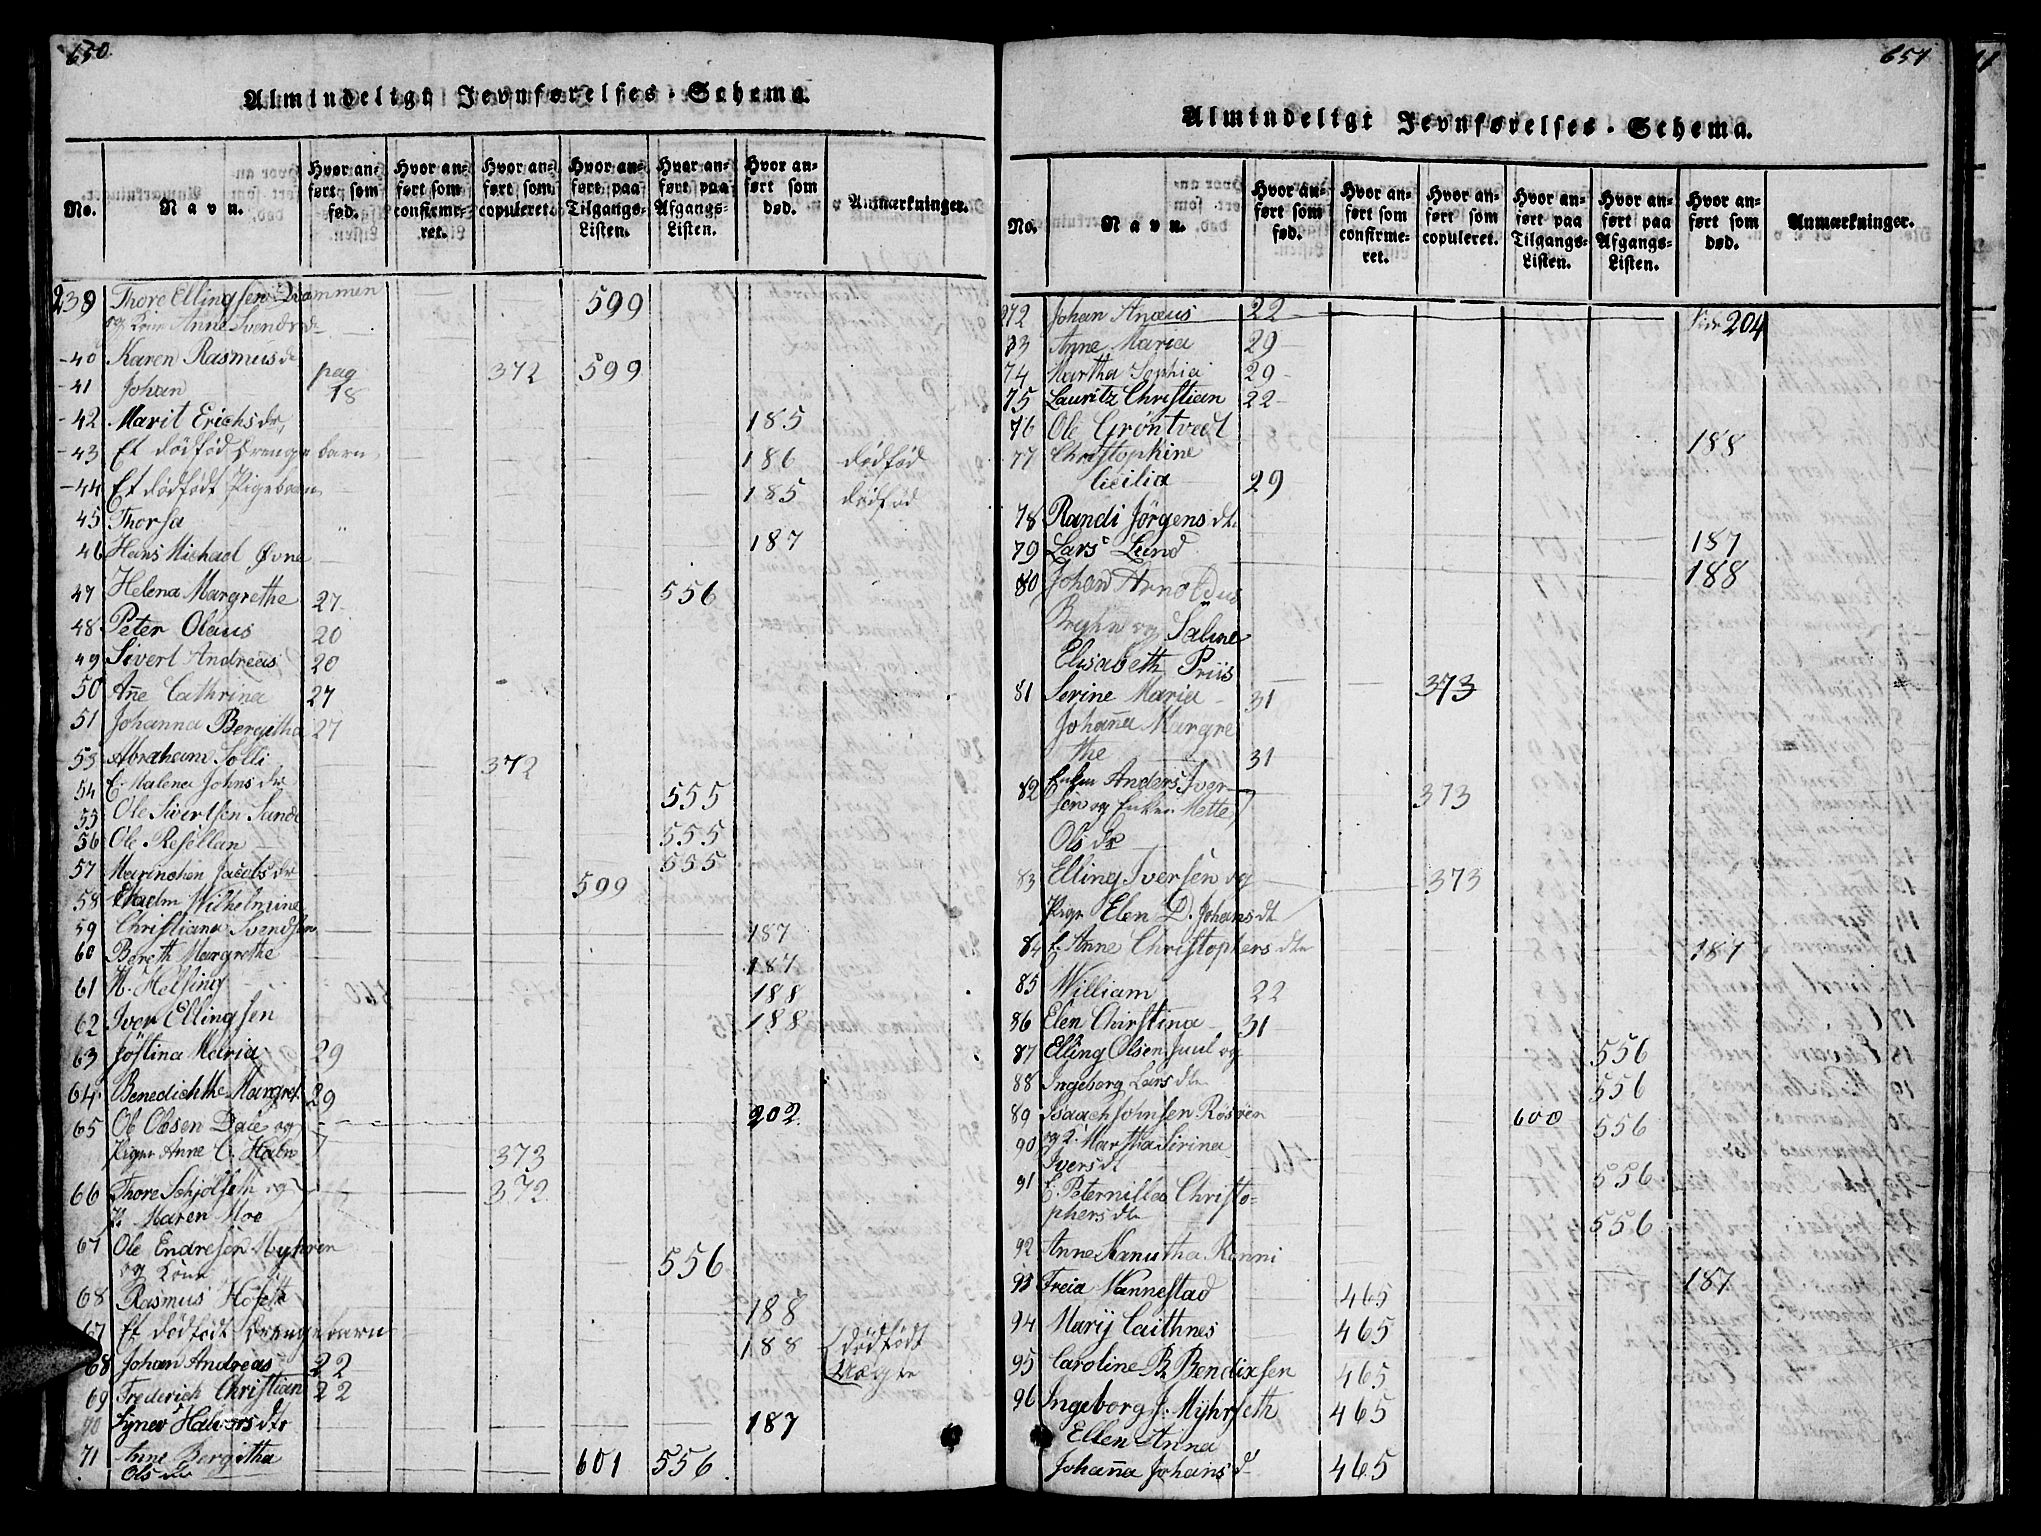 650.
Almindeligt Jevnførelses-Schema.
No.
Navn.
Hvor anført som fød.
Hvor anført som confirmeret.
Hvor anført som copuleret.
Hvor anført paa Tilgangs-Listen.
Hvor anført paa Afgangs-Listen.
Hvor anført som død.
Anmærkninger.
239 Thore Ellingsen 599
og Kone Anne Svendsdr
-40 Karen Rasmusdr 372 599
-41 Johan pag 18
-42 Marit Erichsdr 185
-43 Et dødfød Drengebarn 186 dødfød
-44 Et dødfødt Pigebarn 185 dødfød
45 Thorsa
46 Hans Michael Øvne 187
47 Helena Margrethe 27 556
48 Peter Olaus 20
49 Sivert Andreas 20
50 Añe Cathrina 27
51 Johanna Bergitha 27
53 Abraham Solli 372
54 E. Malena Johnsdr 555
55 Ole Sivertsen Sunde 555
56 Ole Resellan 555
57 Marinchen Jacobsdr 599
58 Wilhelmine
59 Christiana Svendsen 187
60 Bereth Margrethe 187
61 M. Helsing 188
62 Iver Ellingsen 188
63 Jøstina Maria 29
64 Benedichthe Margret 29
65 Ole Olsen Dale og 202
Pigen Anne C. 373
66 Thore og 372
P. Maren Moe
67 Ole Endresen Myhren
og Kone 556
68 Rasmus 188
67 Et dødfødt Drengebarn 188 dødfødt Uægte
68 Johan Andreas 22
69 Frederich Christian 22
70 Synev Halvorsdtr 187
71 Anne Bergitha 601 556
Olsdr
651
Almindeligt Jevnførelses-Schema.
No.
Navn.
Hvor anført som fød.
Hvor anført som confirmeret.
Hvor anført som copuleret.
Hvor anført paa Tilgangs-Listen.
Hvor anført paa Afgangs-Listen.
Hvor anført som død.
Anmærkninger.
272 Johan Anæus 22 204
73 Anne Maria 29
74 Martha Sophia 29
75 Lauritz Christian 22
76 Ole Grøntvedt 188
77 Christophine
Cicilia 29
78 Randi Jørgensdtr 187
79 Lars Lund 188
80 Johan Arnoldus
Bryhn og Saline
Elisabeth Priis 373
81 Serine Maria 31
Johaña Margre
the 31
82 Enkem Anders Iver
sen og Enken Mette 373
Olsdr
83 Elling Iversen og 373
Pige Elen D. Johansdt
84 E. Anne Christophersdtr 187
85 William 22
86 Elen Christina 31
87 Elling Olsen Juul og 556
88 Ingeborg Larsdtr 556
89 Isaach Johnsen 600 556
90 og K. Martha Serina
Iversdt 556
91 E. Peternilla Christo-
phersdtr 556
92 Anne Kanutha Rønni 187
93 Freia Wannestad 465
94 Marÿ Caithnes 465
95 Caroline B. Bendixsen 465
96 Ingeborg J. Mÿhrseth 465
Ellen Anna
Johaña Johansd 465